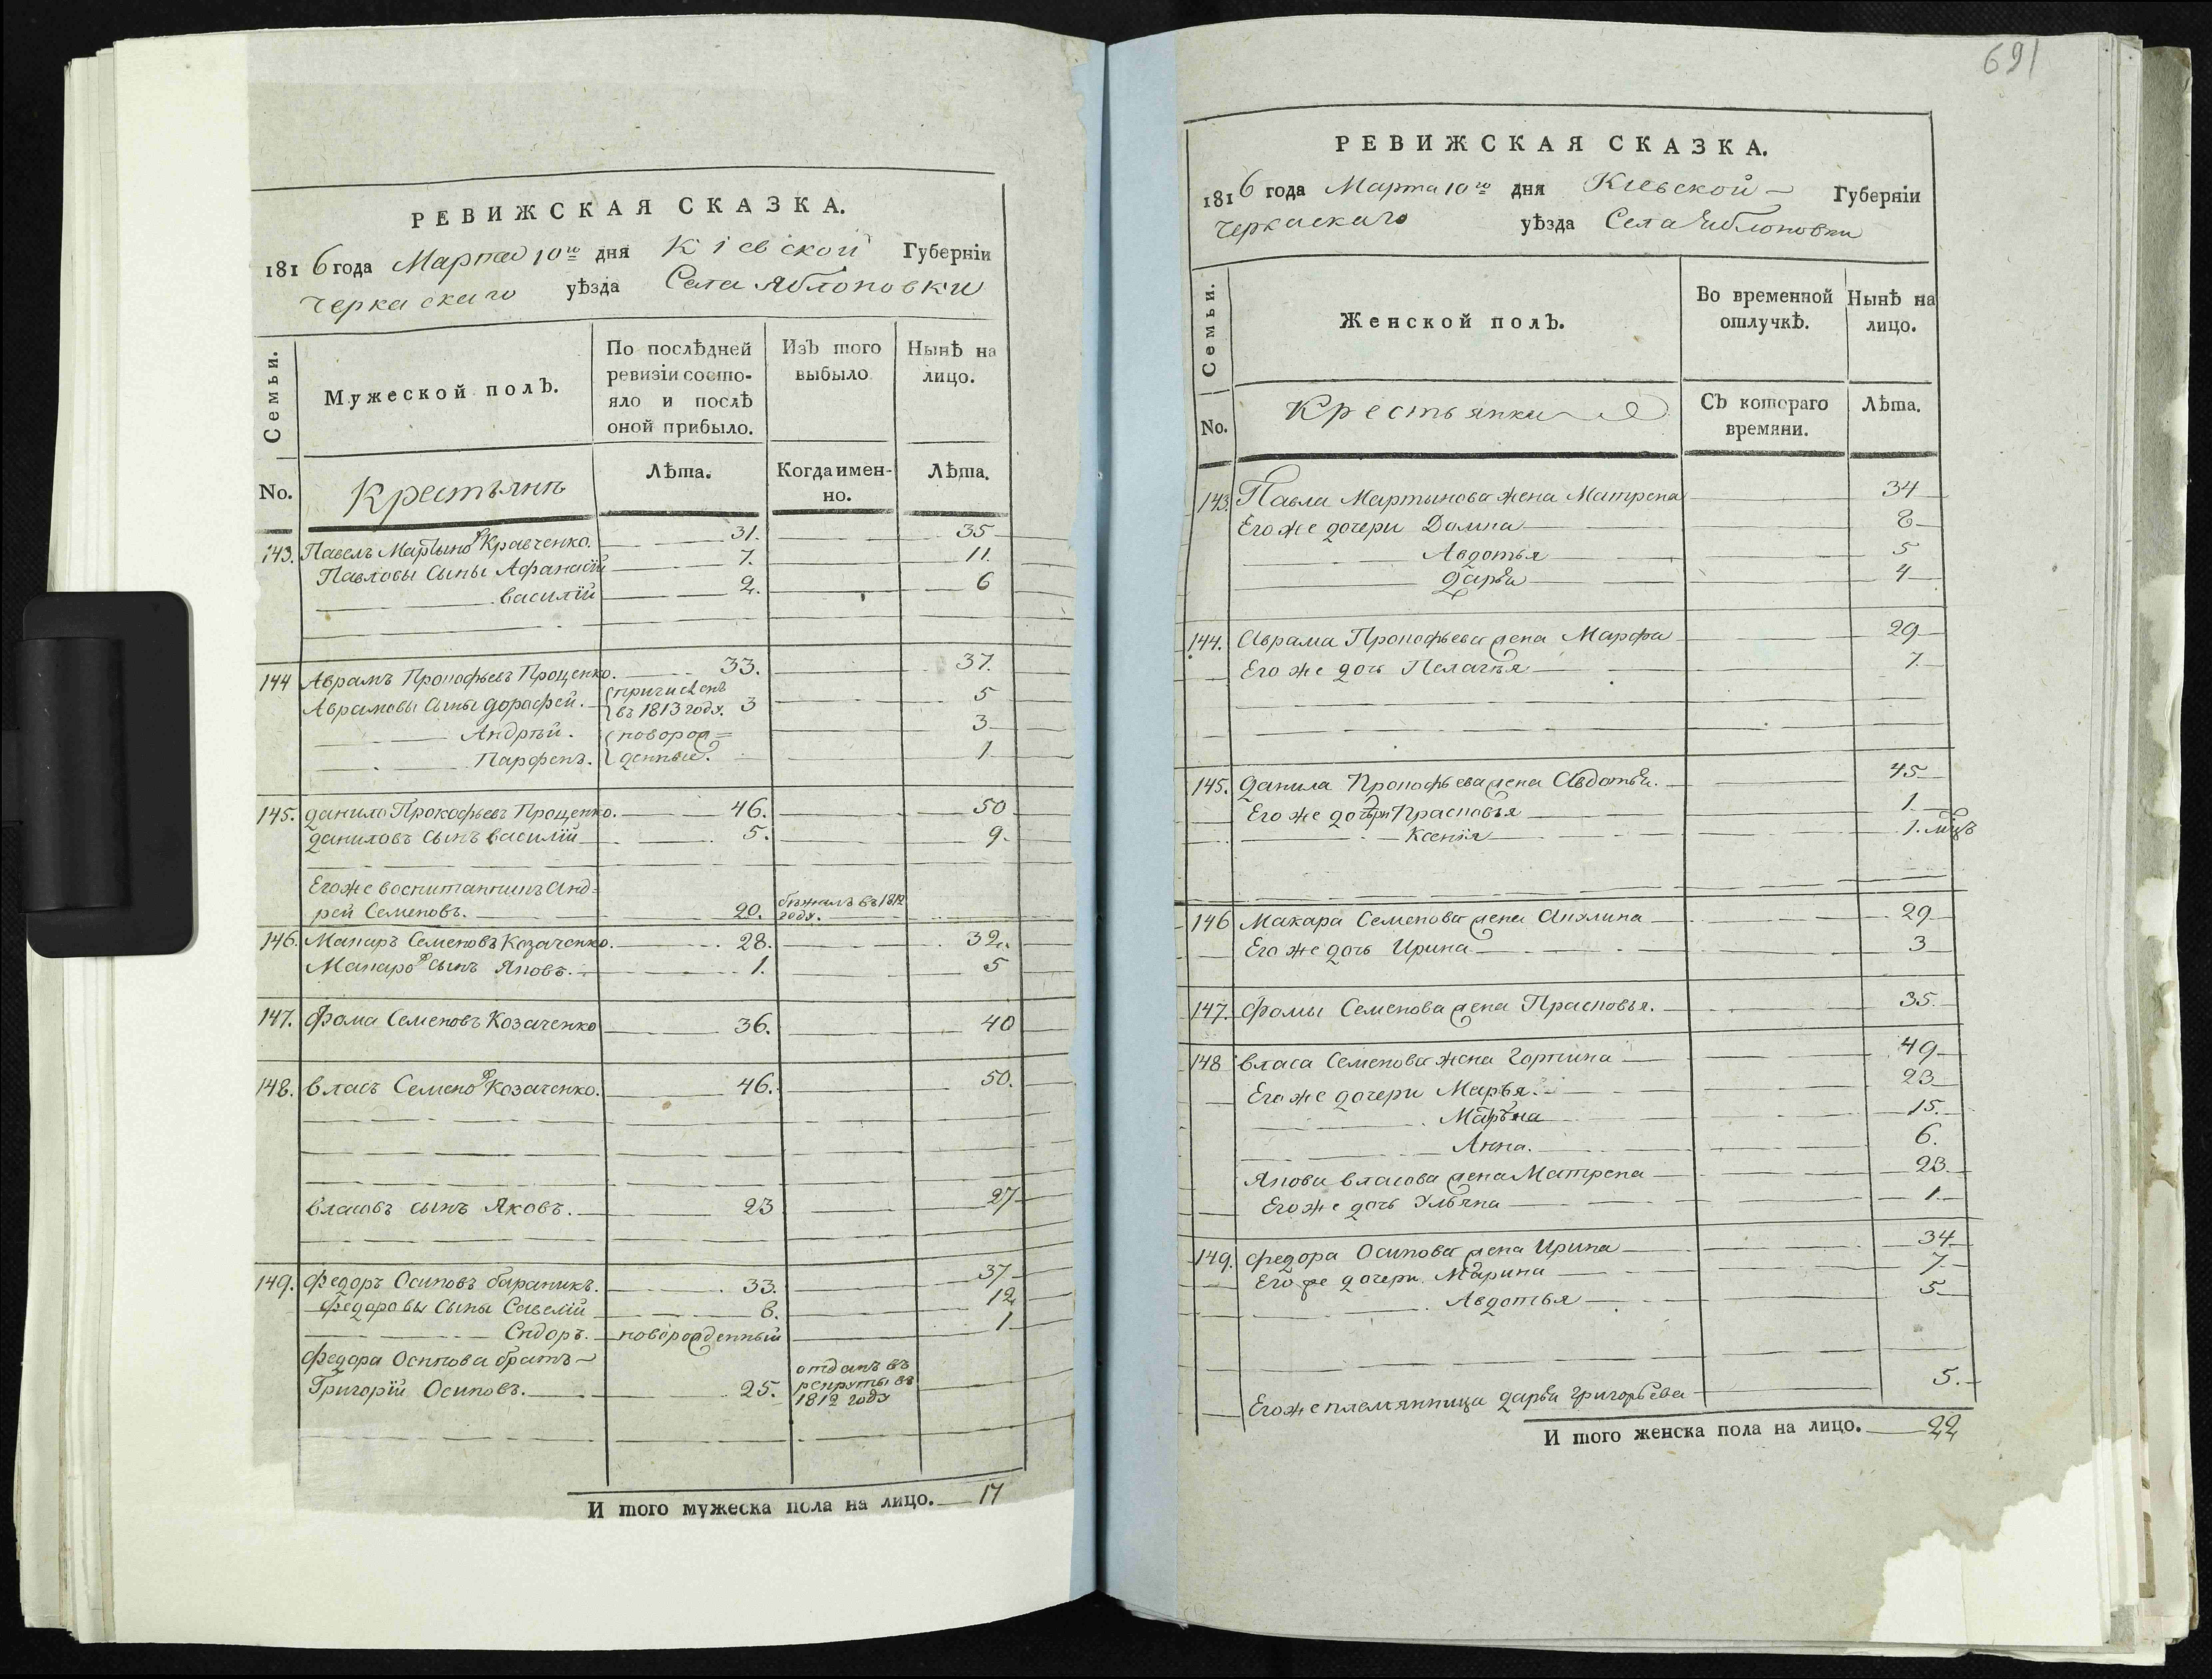 РЕВИЖСКАЯ СКАЗКА.
1816 года Марта 10го дня Кіевской Губерніи
Черкаскаго уѣзда Села Яблоновки
Семьи.
Мужеской полъ.
По послѣдней ревизіи состо-
яло и послѣ
оной прибыло.
Изъ того
выбыло
Нынѣ на
лицо.
No.
Крестьянъ
Лѣта.
Когда имен-
но.
Лѣта.
143. Павелъ Мартыновъ Кравченко. 31. 35
Павловы сыны Афанасій 7. 11.
Василій 2. 6
144 Аврамъ Прокофьевъ Проценко. 33. 37.
Аврамовы сыны Дорофей. причисленъ въ 1813 году. 3 5
Андрѣй. новорож= 3
Парфенъ. денные. 1
145. Данило Прокофьевъ Проценко. 46. 50
Даниловъ сынъ Василій 5. 9.
Его же воспитанникъ Анд=
рей Семеновъ. 20. бѣжалъ въ 1812 году.
146. Макаръ Семеновъ Козаченко. 28. 32.
Макаровъ сынъ Яковъ. 1. 5
147. Фома Семеновъ Козаченко 36. 40
148. Власъ Семеновъ Козаченко. 46. 50.
Власовъ сынъ Яковъ. 23 27
149. Федоръ Осиповъ Бараникъ. 33. 37
Федоровы сыны Савелій 8. 12
Сидоръ. новорожденный 1
Федора Осипова братъ
Григорій Осиповъ. 25. отданъ въ рекруты въ 1812 году
И того мужеска пола на лицо. 17
691
РЕВИЖСКАЯ СКАЗКА.
1816 года Марта 10го дня Кіевской Губерніи
Черкаскаго уѣзда Села Яблоновки
Семьи.
Женской полъ.
Во временной
отлучкѣ.
Нынѣ на
лицо.
No.
Крестьянки
Съ котораго
времяни.
Лѣта.
143. Павла Мартынова жена Матрена 34
Его же дочери Домна 8
Авдотья 5
Дарья 4
144. Аврама Прокофьева жена Марфа 29
Его же дочь Пелагѣя 7.
145. Данила Прокофьева жена Авдотья. 45
Его же дочери Прасковья 1
Ксенія 1. мцъ
146 Макара Семенова жена Акилина 29
Его же дочь Ирина 3
147. Фомы Семенова жена Прасковья. 35.
148 Власа Семенова жена Горпина 49
Его же дочери Марья. 23
Марьяна 15.
Анна. 6.
Якова Власова жена Матрена 23.
Его же дочь Ульяна 1.
149. Федора Осипова жена Ирина 34
Его же дочери Марина 7
Авдотья 5
Его же племянница Дарья Григорьева 5.
И того женска пола на лицо. 22